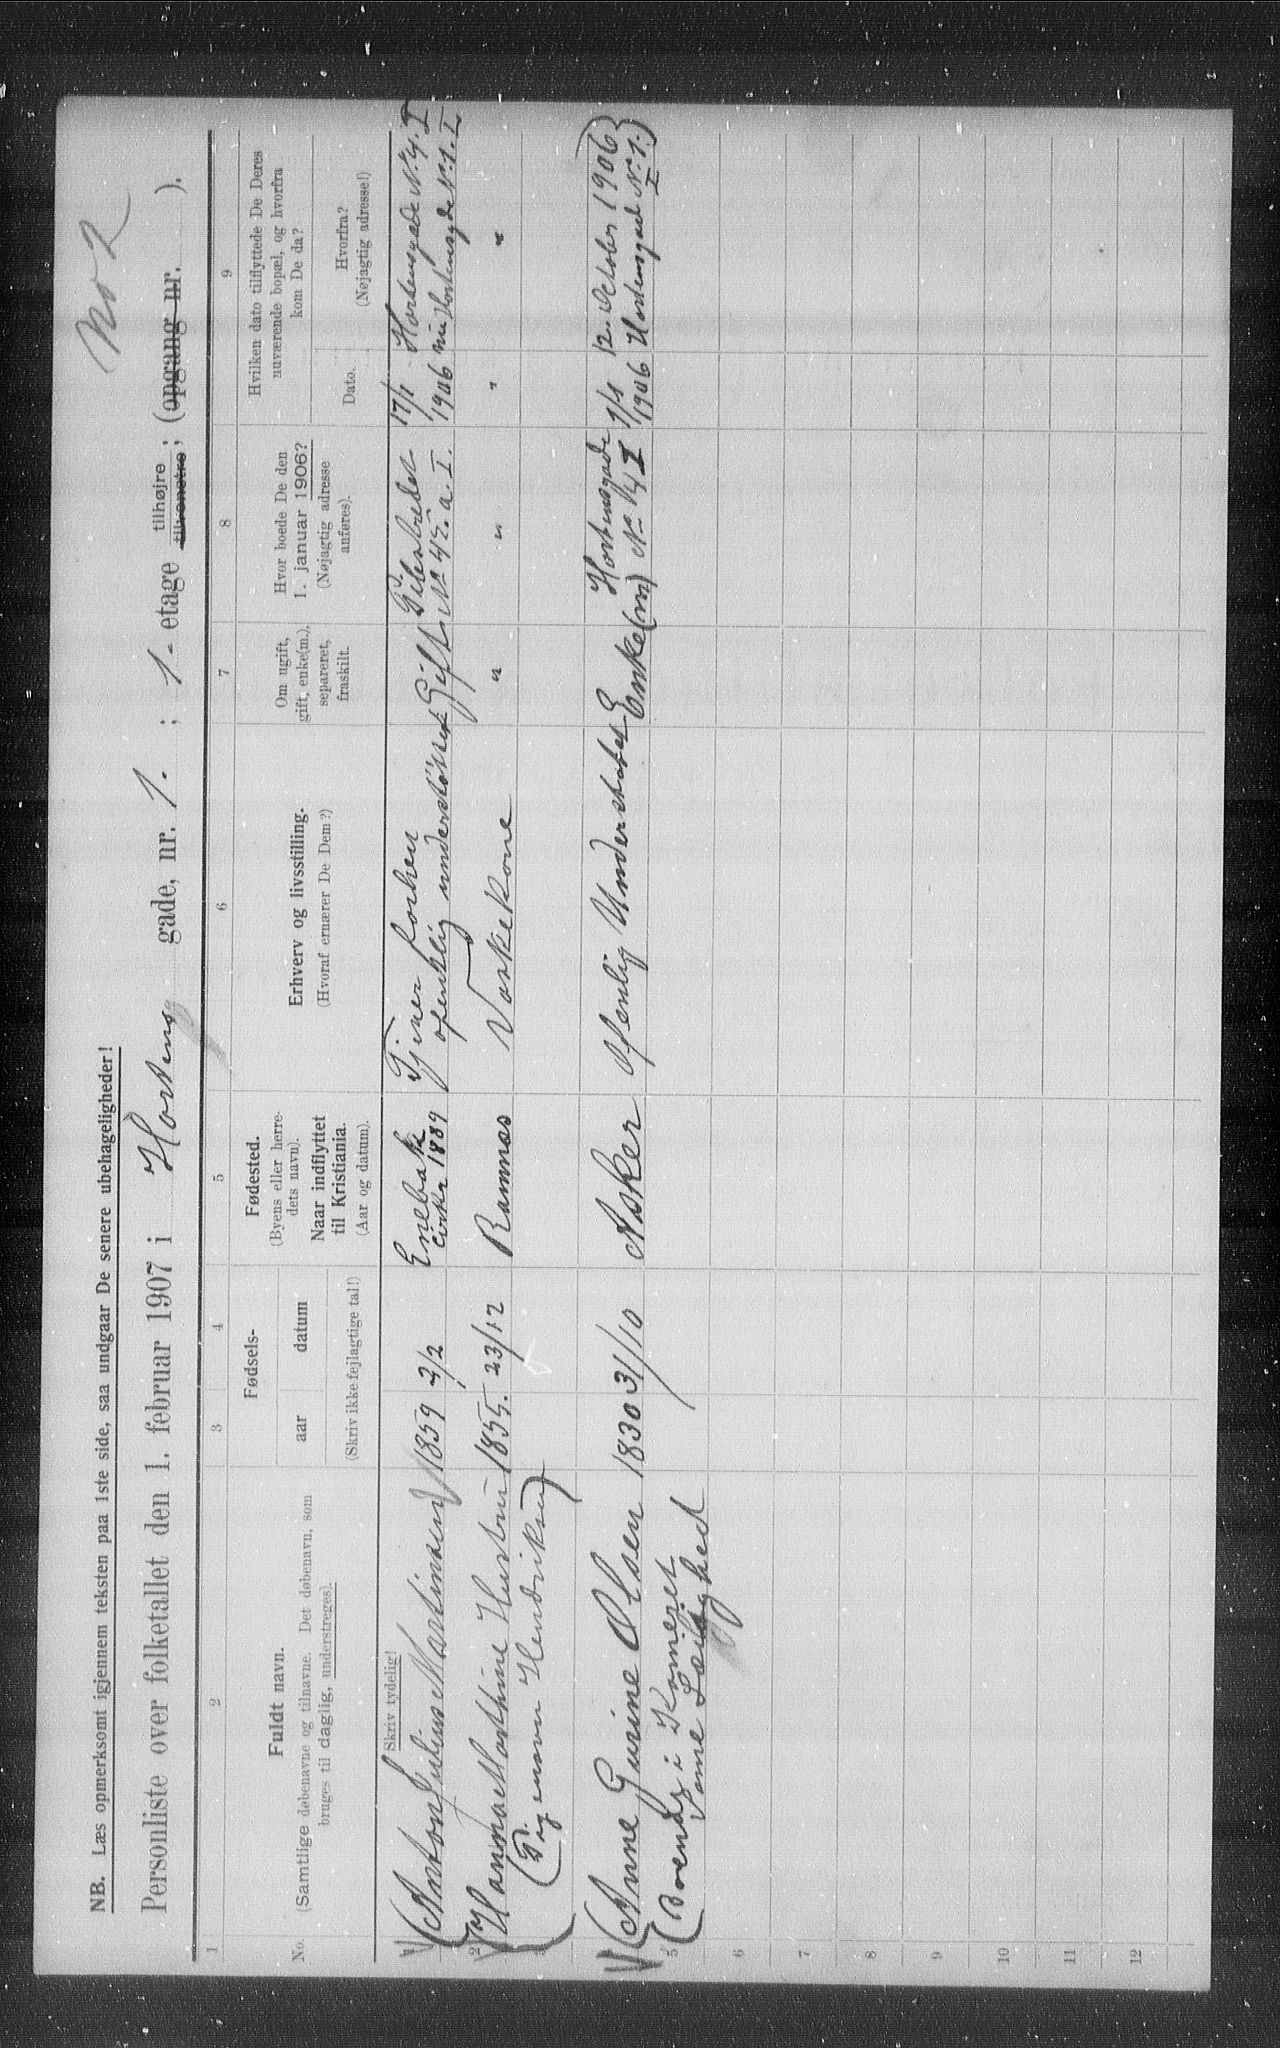 No 2
NB. Læs opmerksomt igjennem teksten paa 1ste side, saa undgaar De senere ubehageligheder!
Personliste over folketallet den 1. februar 1907 i Hortens gade, nr. 1. ; 1 - etage tilhøjre tilvenstre; (opgang nr. ).
1 2 3 4 5 6 7 8 9
No.
Fuldt navn.
(Samtlige døbenavne og tilnavne. Det døbenavn, som
bruges til daglig, understreges).
Fødsels-
aar datum
(Skriv ikke fejlagtige tal!)
Fødested.
(Byens eller herre-
dets navn).
Naar indflyttet
til Kristiania.
(Aar og datum).
Erhverv og livsstilling.
(Hvoraf ernærer De Dem?)
Om ugift,
gift, enke(m.),
separeret,
fraskilt.
Hvor boede De den
1. januar 1906?
(Nøjagtig adresse
anføres).
Hvilken dato tilflyttede De Deres
nuværende bopæl, og hvorfra
kom De da?
Dato.
Hvorfra?
(Nøjagtig adresse!)
Skriv tydelig!
Anton Julius Martinsen 1859 2/2 Enebak Tjener forhen Gift Pilestredet 17/1 Hortensgade No 4. I
cirka 1889 offentlig understøttet No 42. a. I. 1906 nu Hortensgde No 1. I
2 Hanna Mathine Hustru 1855. 23/12 Ramnæs Vaskekone " " " "
3 (Pigenavn Hendriksen)
Anne Gurine Olsen 1830 31/10 Asker Ofenlig Understøtet Enke(m) Hortensgade No 14 I 1/4 1906 12. October 1906
Hortensgade No 1. I
5 (Boende i Kameret
samme Leilighed
6
7
8
9
10
11
12